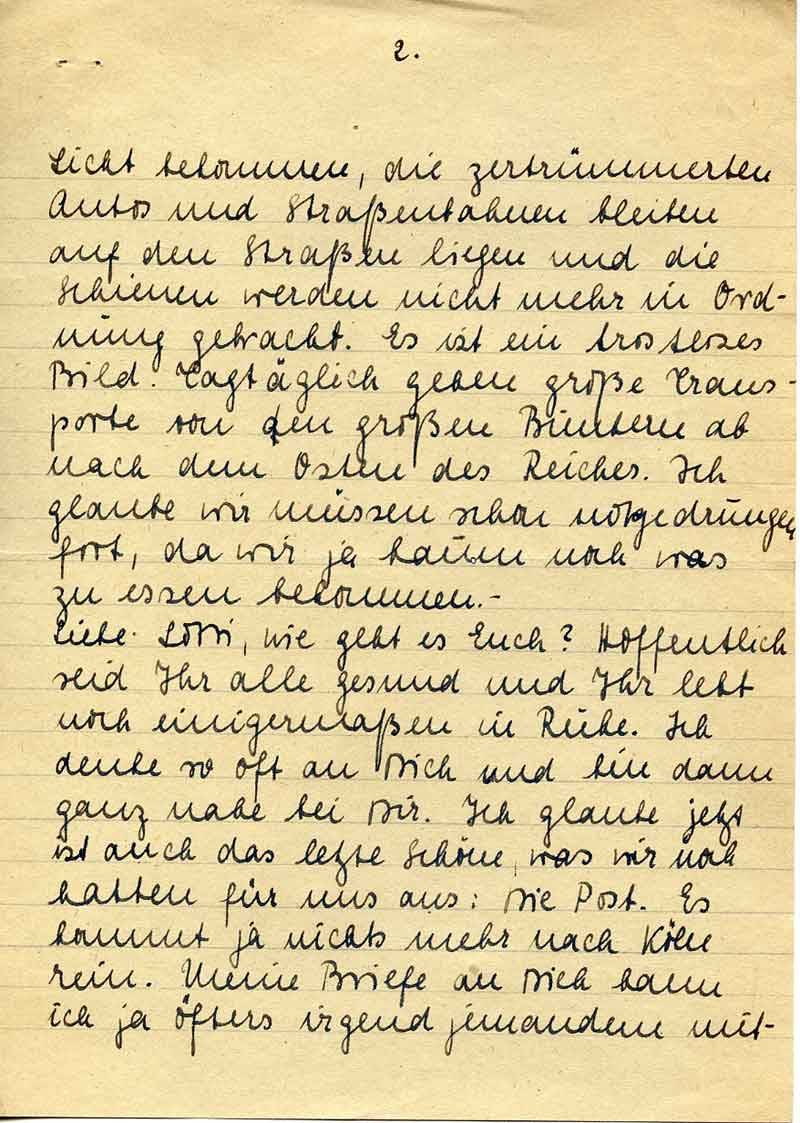 2.
Licht bekommen, die zertrümmerten
Autos und Straßenbahnen bleiben
auf den Straßen liegen und die
Schienen werden nicht mehr in Ord-
nung gebracht. Es ist ein trostloses
Bild. Tagtäglich gehen große Trans-
porte von den großen Bunkern ab
nach dem Osten des Reiches. Ich
glaube wir müssen schon notgedrungen
fort, da wir ja kaum noch was
zu essen bekommen.-
Liebe Lotti, wie geht es Euch? Hoffentlich
seid Ihr alle gesund und Ihr lebt
noch einigermaßen in Ruhe. Ich
denke so oft an Dich und bin dann
ganz nahe bei Dir. Ich glaube jetzt
ist auch das letzte Schöne, was wir noch
hatten für uns aus: Die Post. Es
kommt ja nichts mehr nach Köln
rein. Meine Briefe an Dich kann
ich ja öfters irgend jemandem mit-